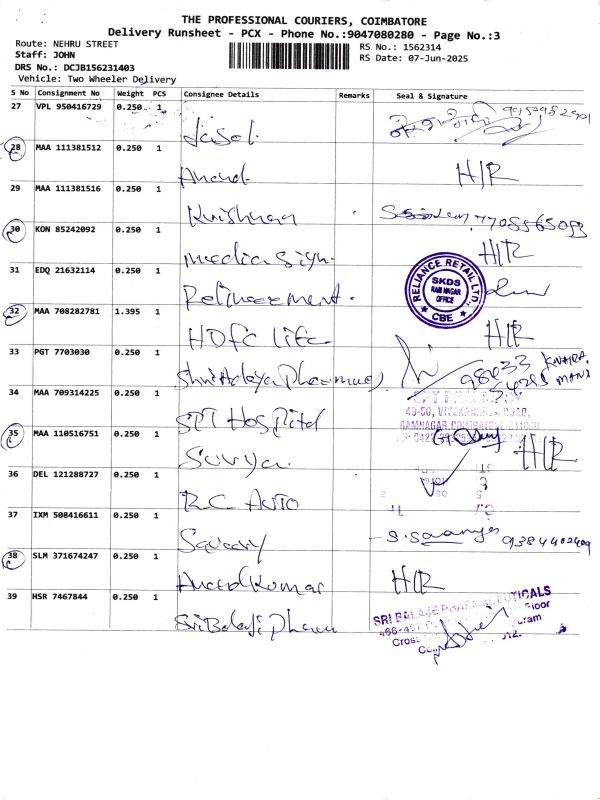 THE PROFESSIONAL COURIERS, COIMBATORE
Delivery Runsheet - PCX - Phone No.:9047080280 - Page No.:3
Route: NEHRU STREET
RS No.: 1562314
Staff: JOHN
RS Date: 07-Jun-2025
DRS No.: DCJB156231403
Vehicle: Two Wheeler Delivery
S No Consignment No Weight PCS Consignee Details Remarks Seal & Signature
27 VPL 950416729 0.250 1
28 MAA 111381512 0.250 1 Anand H/R
29 MAA 111381516 0.250 1 Krishnan
30 KON 85242092 0.250 1 media sign. H/R
31 EDQ 21632114 0.250 1
RELIANCE RETAIL LTD.,
SKDS
RAM NAGAR
OFFICE
★ CBE ★
32 MAA 708282781 1.395 1 HDFC Life H/R
33 PGT 7703030 0.250 1 98033
34 MAA 709314225 0.250 1 SPT Hospital
35 MAA 110516751 0.250 1 Surya H/R
36 DEL 121288727 0.250 1 R.C AUTO
37 IXM 508416611 0.250 1 9384402409
38 SLM 371674247 0.250 1 Anand Kumar H/R
39 HSR 7467844 0.250 1 Sri Balaji Pharm
SRI BALAJE PHARMACEUTICALS